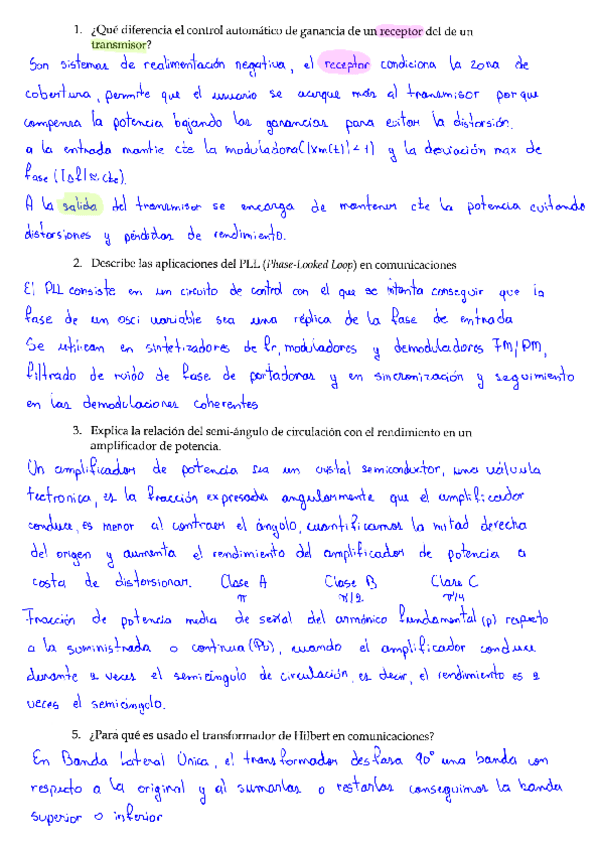 1. ¿Qué diferencia el control automático de ganancia de un receptor del de un
transmisor?
Son sistemas de realimentación negativa, el receptor condiciona la zona de
cobertura, permite que el usuario se acerque más al transmisor porque
compensa la potencia bajando las ganancias para evitar la distorsión.
a la entrada mantie cte la moduladora (|xm(t)|<1) y la deviación max de
fase (|Δf|≈cte).
A la salida del transmisor se encarga de mantener cte la potencia evitando
distorsiones y pérdidas de rendimiento.
2. Describe las aplicaciones del PLL (Phase-Looked Loop) en comunicaciones
El PLL consiste en un circuito de control con el que se intenta conseguir que la
fase de un osci variable sea una réplica de la fase de entrada
Se utilizan en sintetizadores de fr, moduladores y demoduladores FM/PM,
filtrado de ruido de fase de portadoras y en sincronización y seguimiento
en las demodulaciones coherentes
3. Explica la relación del semi-ángulo de circulación con el rendimiento en un
amplificador de potencia.
Un amplificador de potencia sea un cristal semiconductor, una válvula
tectronica, es la fracción expresada angularmente que el amplificador
conduce, es menor al contraer el ángulo, cuantificamos la mitad derecha
del origen y aumenta el rendimiento del amplificador de potencia a
costa de distorsionar. Clase A Clase B Clase C
π π/2 π/4
Fracción de potencia media de señal del armónico fundamental (p) respecto
a la suministrada o continua (Pb), cuando el amplificador conduce
durante 2 veces el semiángulo de circulación, es decir, el rendimiento es 2
veces el semiángulo.
5. ¿Para qué es usado el transformador de Hilbert en comunicaciones?
En Banda Lateral Única, el transformador desfasa 90° una banda con
respecto a la original y al sumarlas o restarlas conseguimos la banda
superior o inferior